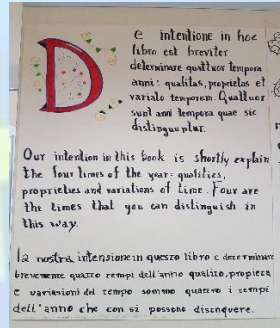 De intentione in hoc
libro est breviter
determinare quattuor tempora
anni: qualitas, proprietas et
variatio temporum. Quattuor
sunt anni tempora quae sic
distinguuntur.
Our intention in this book is shortly explain
the four times of the year: qualities,
proprieties and variations of time. Four are
the times that you can distinguish in
this way.
la nostra intensione in questo libro e determinare
brevemente quatro tempi dell'anno qualità, propieta
e variasioni del tempo sommo quattro i tempi
dell'anno che con si possono